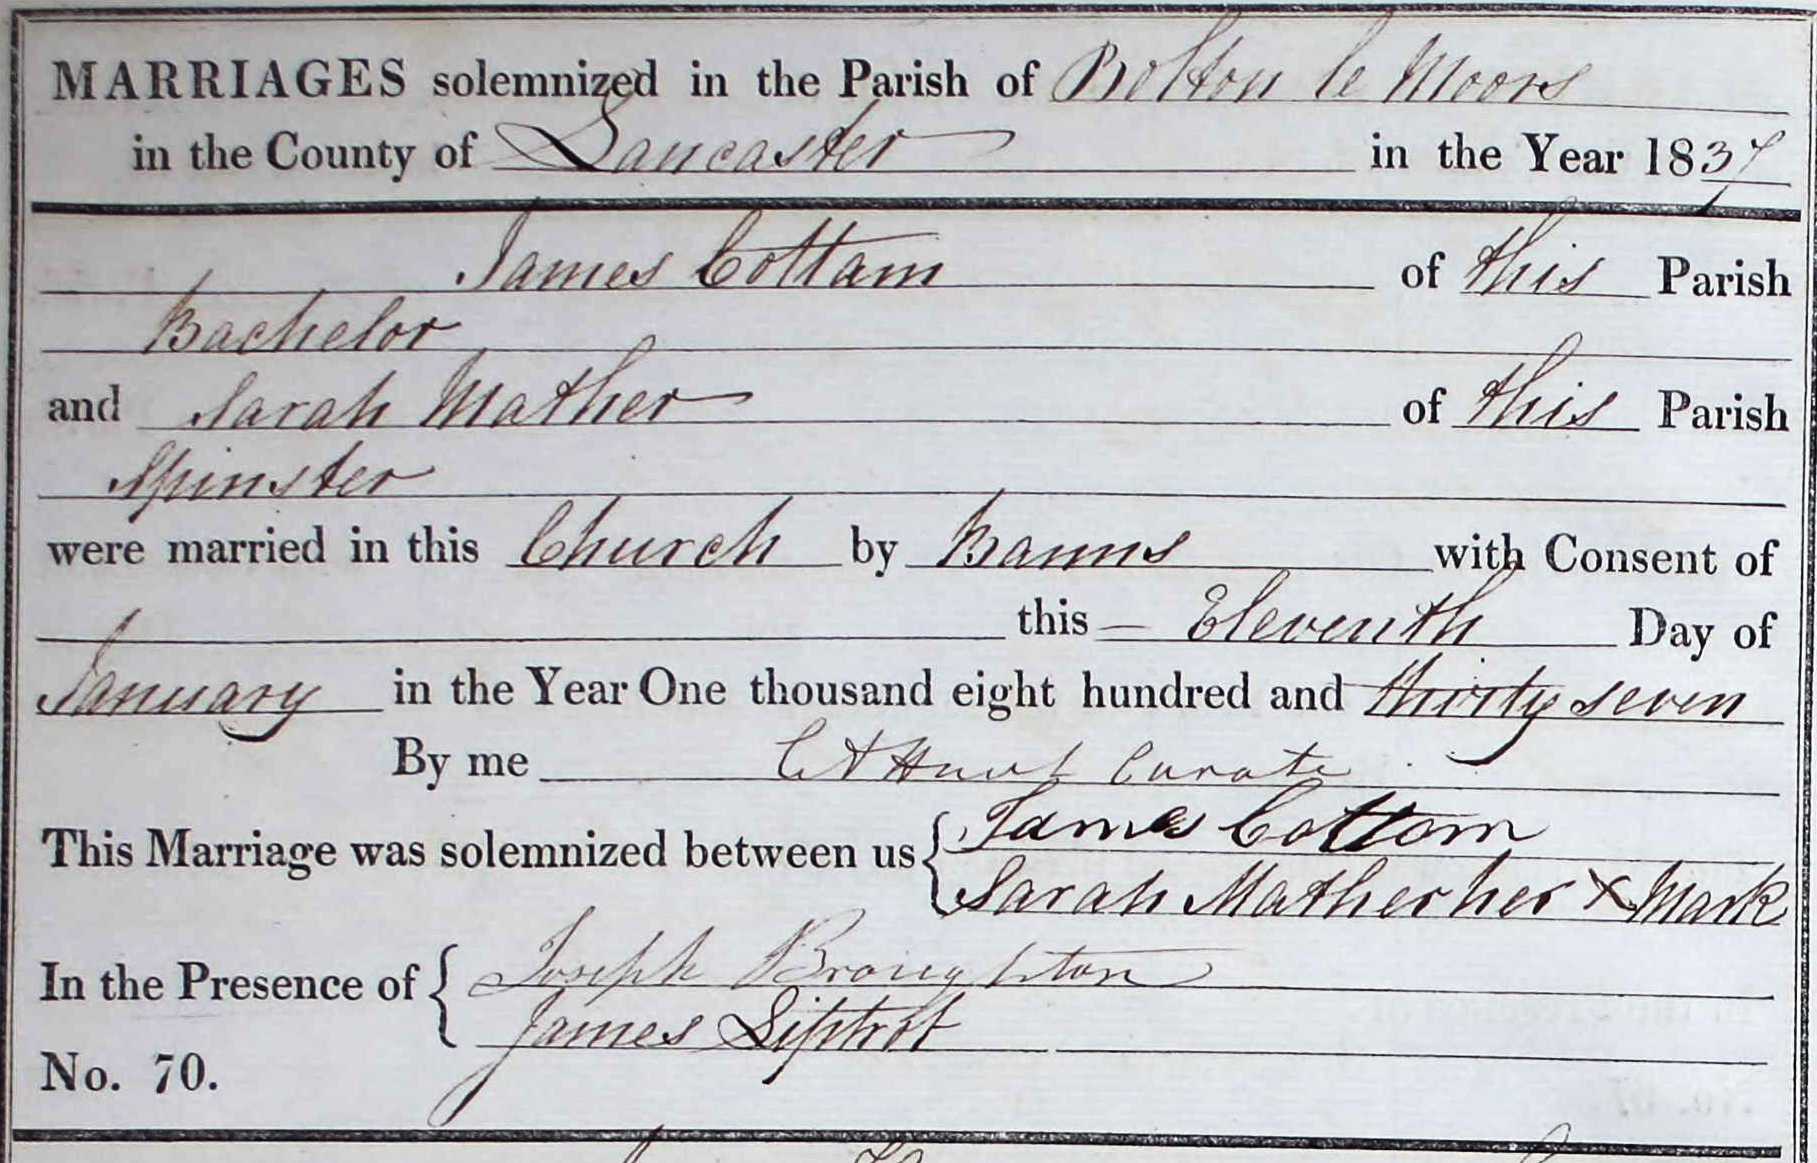 MARRIAGES solemnized in the Parish of Bolton le Moors
in the County of Lancaster in the Year 1837
James Cottam of this Parish
Bachelor
and Sarah Mather of this Parish
Spinster
were married in this Church by Banns with Consent of
this Eleventh Day of
January in the Year One thousand eight hundred and thirty seven
By me Curate
This Marriage was solemnized between us { James Cottam
Sarah Mather her X Mark
In the Presence of { Joseph Broughton
James Siptrot
No. 70.